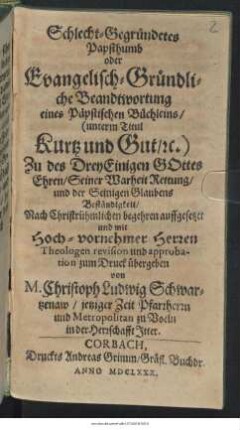 Schlecht-Gegründetes
Papsthumb
oder
Evangelisch-Gründli-
che Beandtwortung
eines Päpstischen Büchleins/
(unterm Titul
Kurtz und Gut/ꝛc.)
Zu des DreyEinigen GOttes
Ehren/Seiner Warheit Rettung/
und der Seinigen Glaubens
Beständigkeit/
Nach Christrühmlichen begehren auffgesetzet
und mit
Hoch-vornehmer Herren
Theologen revision und approba-
tion zum Druck übergeben
von
M. Christoph Ludwig Schwar-
tzenaw/ jetziger Zeit Pfarrherrn
und Metropolitan zu Voehl
in der Herrschafft Itter.
CORBACH,
Druckts Andreas Grimm/Gräfl. Buchdr.
ANNO MDCLXXX.